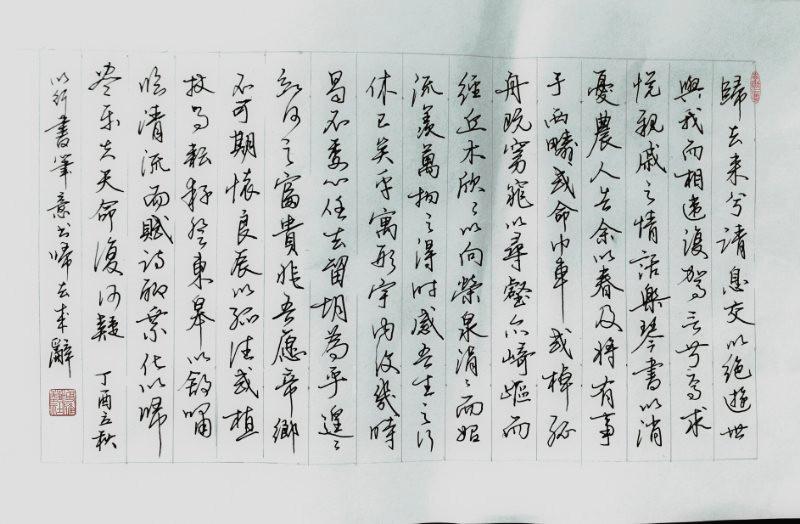 歸去来兮請息交以絕遊世
與我而相違復駕言兮焉求
悅親戚之情話樂琴書以消
憂農人告余以春及將有事
于西疇或命巾車或棹孤
舟既窈窕以尋壑亦崎嶇而
經丘木欣〻以向榮泉涓〻而始
流羨萬物之得時感吾生之行
休已矣乎寓形宇內復幾時
曷不委心任去留胡為乎遑〻
欲何之富貴非吾愿帝鄉
不可期懷良辰以孤往或植
杖而耘耔登東皋以舒嘯
臨清流而賦詩聊乘化以歸
盡樂夫天命復何疑 丁酉立秋
以行書筆意書歸去来辭